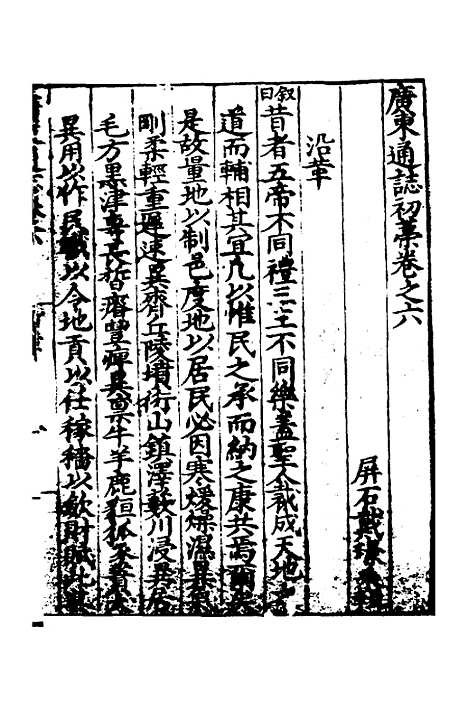 廣東通誌初藁卷之六
屏石戴璟
沿革
叙曰昔者五帝不同禮三王不同樂蓋聖人裁成天地之
道而輔相其宜凡以惟民之承而納之康共焉爾
是故量地以制邑度地以居民必因寒煖燥濕異
剛柔輕重遲速異齊丘陵墳衍山鎮澤藪川浸異
毛方黑津專長晳瘠豐痺異 牛羊鹿狟狐
異用以作民 以令地貢以任稼穡以斂財賦